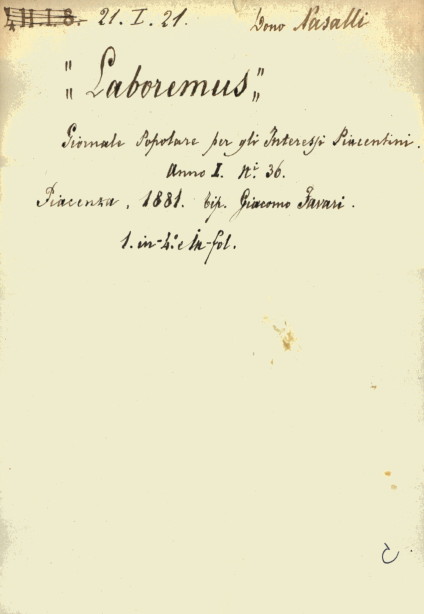 21. I. 21. Dono Nasalli
"Laboremus"
Giornale Popolare per gli Interessi Piacentini.
Anno I. Ni. 36.
Piacenza, 1881. tip. Giacomo Favari.
1. in-4.º e in-fol.